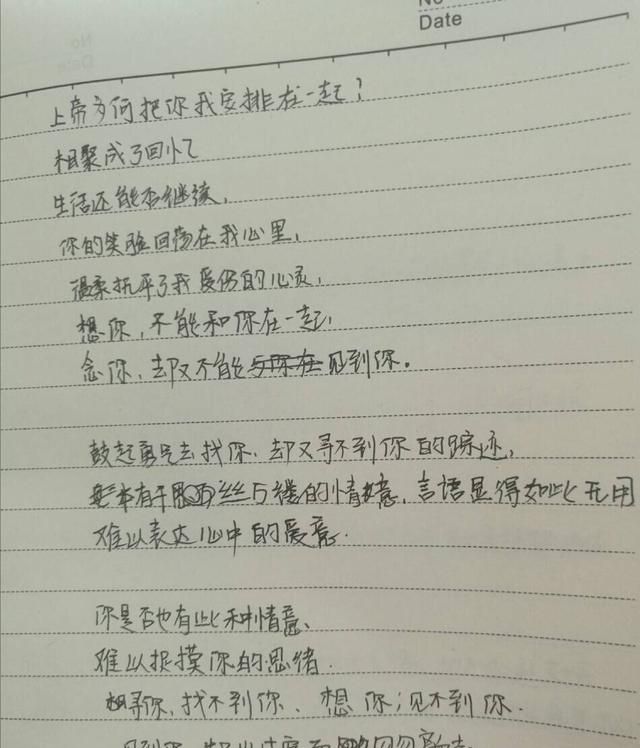 No
Date
上帝为何把你我安排在一起?
相聚成了回忆
生活还能否继续,
你的笑脸回荡在我心里,
温柔抚平了我受伤的心灵,
想你,不能和你在一起,
念你,却又不能与你在见到你。
鼓起勇气去找你,却又寻不到你的踪迹,
有千思万丝万缕的情意,言语显得如此无用
难以表达心中的爱意.
你是否也有此种情意、
难以捉摸你的思绪.
想寻你,找不到你、想你;见不到你.